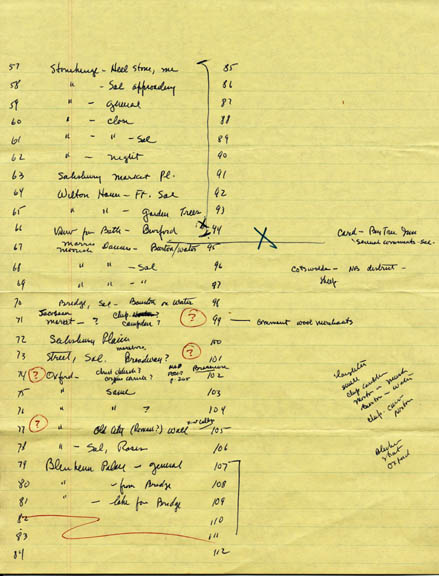 57 Stonehenge - Heel Stone, me 85
58 " - Sal approaching 86
59 " - general 87
60 " - close 88
61 " " - Sal 89
62 " - night 90
63 Salisbury Market Pl. 91
64 Wilton House - Ft. Sal 92
65 " " - garden Trees 93
66 View for Bath - Burford 94
Card - Bay Tree Inn
67 Morris Dances - Burton/water 95
68 " " - Sal 96
Cotswolds - NB district - Sheep
69 " " - " 97
70 Bridge, Sal - Bourton on Water 98
71 Jacobean market - ? Chip. Campden? ? 99 - Covenant wool merchants
72 Salisbury Plain 100
73 Street, Sal. Broadway? ? 101
74 ? Oxford - Christ Church? 102
75 " Same 103
76 " ? 104
77 ? " Old City (Roman?) Wall 105
78 " - Sal, Roses 106
79 Blenheim Palace - general 107
80 " - from Bridge 108
81 " - lake for Bridge 109
82 110
83 111
84 112
Chip Camden
Burton - water
Norton
Oxford